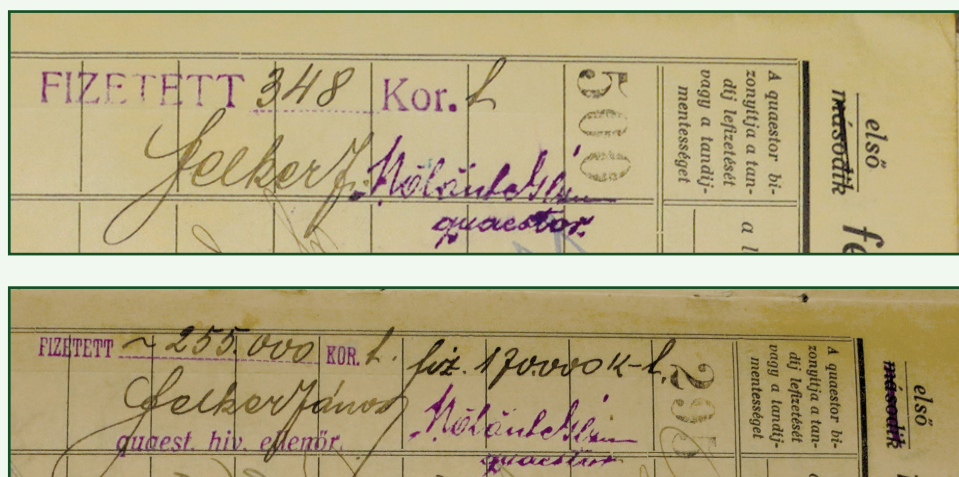 FIZETETT 348 Kor. l
Felker J.
quaestor.
500
A quaestor bi-
zonyitja a tan-
dij lefizetését
vagy a tandij-
mentességet
első
második
a l
fe
FIZETETT ~ 255.000 KOR. l. fiz. 170.000 K-l.
Felker János
quaest. hiv. ellenőr.
quaestor
295
A quaestor bi-
zonyitja a tan-
dij lefizetését
vagy a tandij-
mentességet
első
második